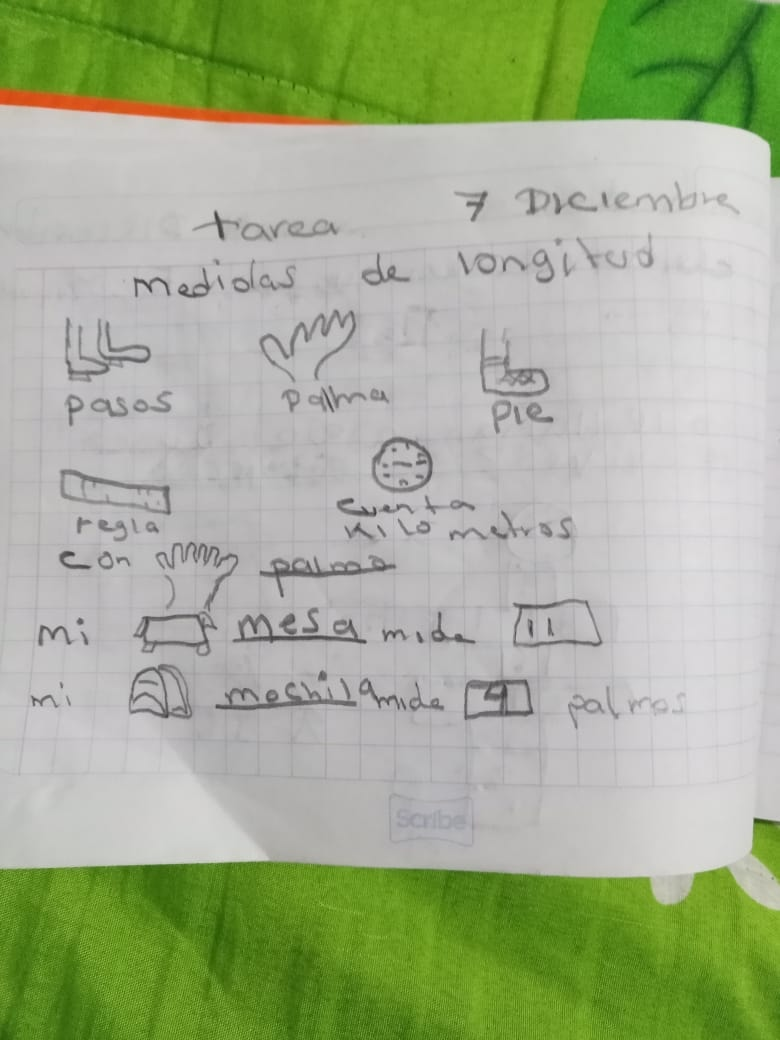 7 Diciembre
tarea
medidas de longitud
pasos palma pie
regla cuenta kilo metros
con palmo
mi mesa mide 11
mi mochila mide 4 palmos
Scribe